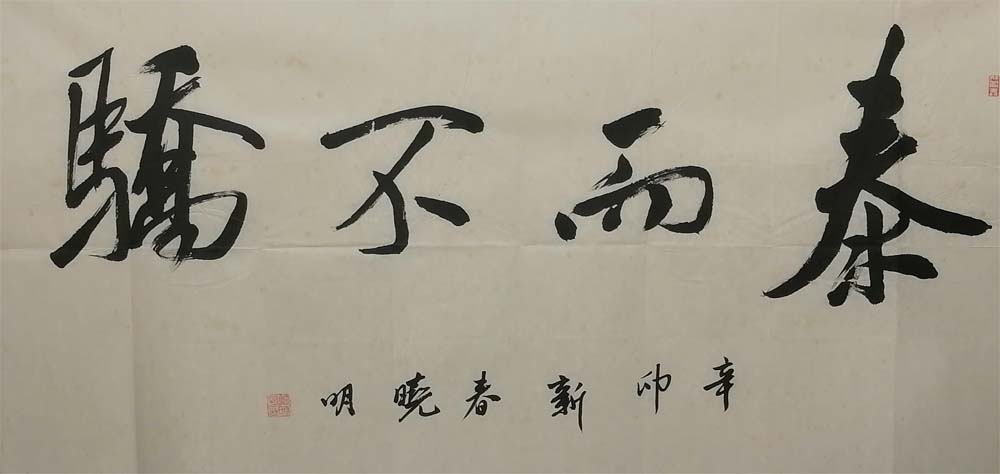 泰而不驕
辛卯新春曉明